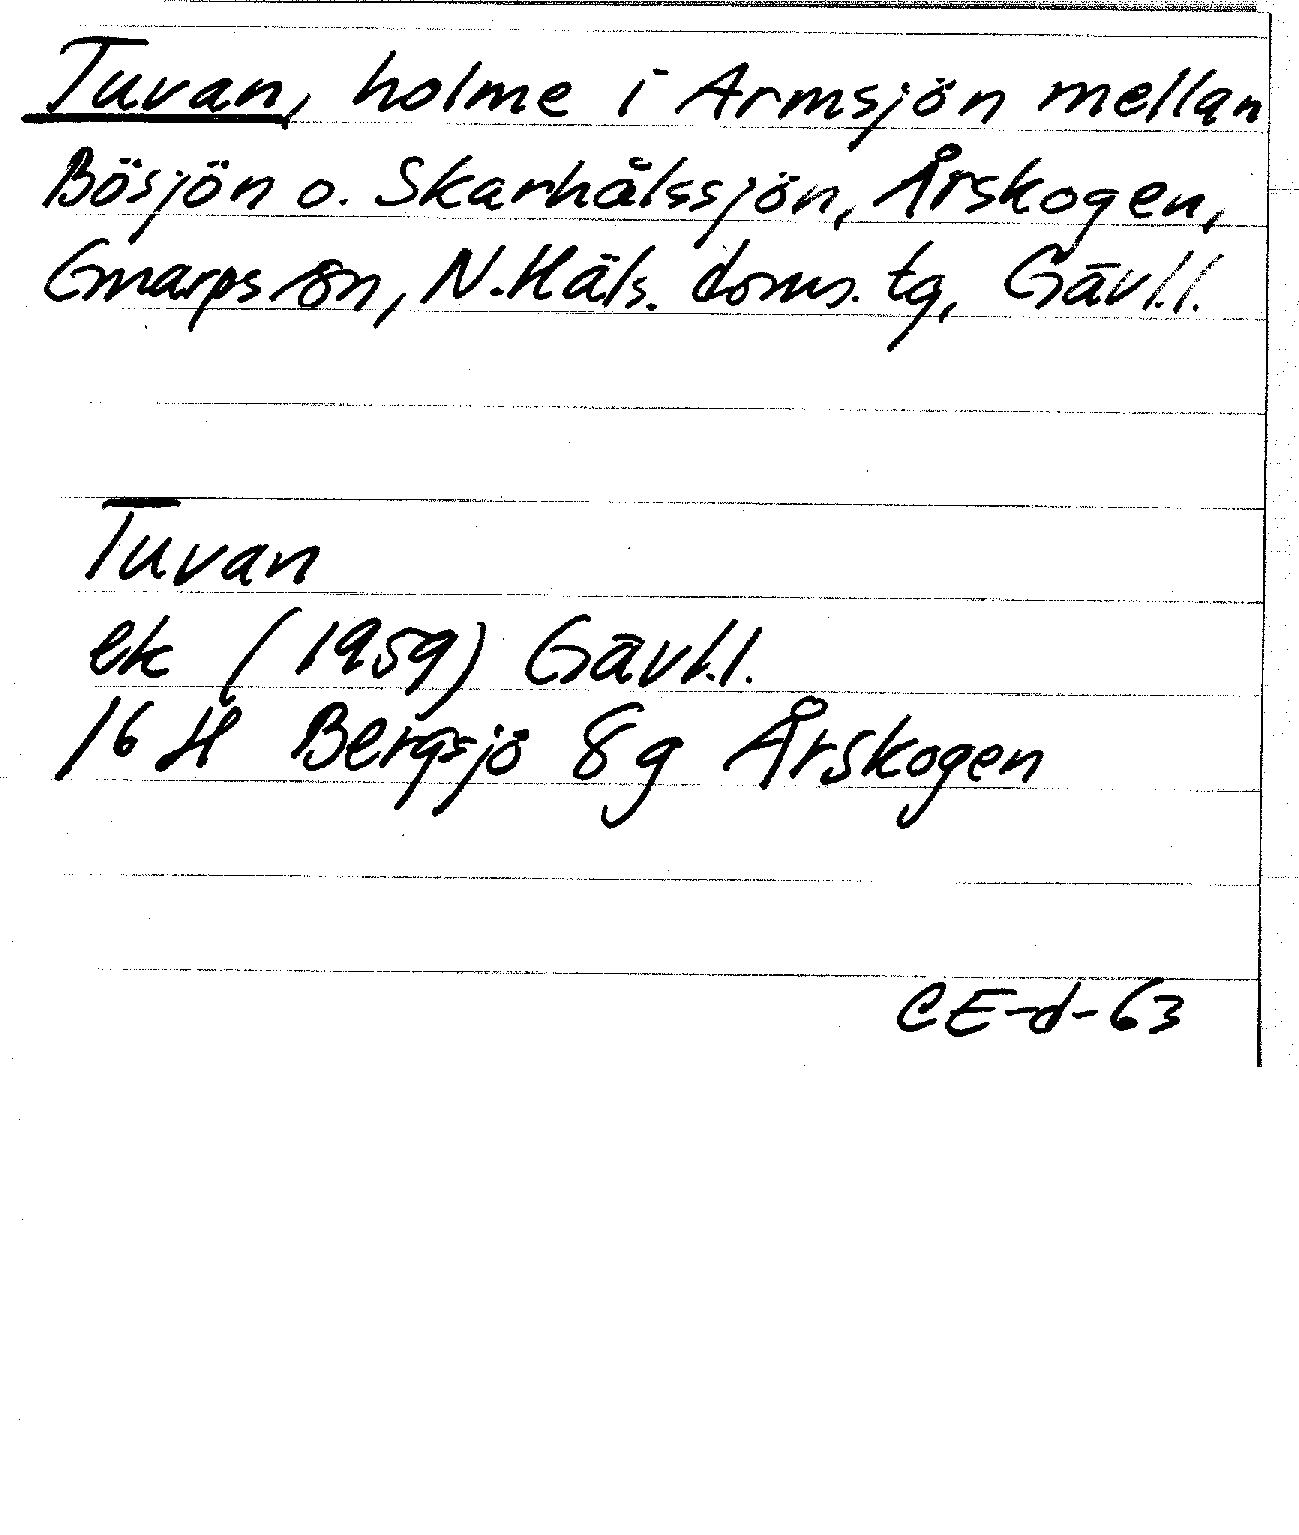 Tuvan, holme i Armsjön mellan
Bösjön o. Skarhålssjön, Årskogen,
Gnarps sn, N.Häls. doms. tg, Gävl.l.
Tuvan
ek (1959) Gävl.l.
16 H Bergsjö 8g Årskogen
CE-d-63